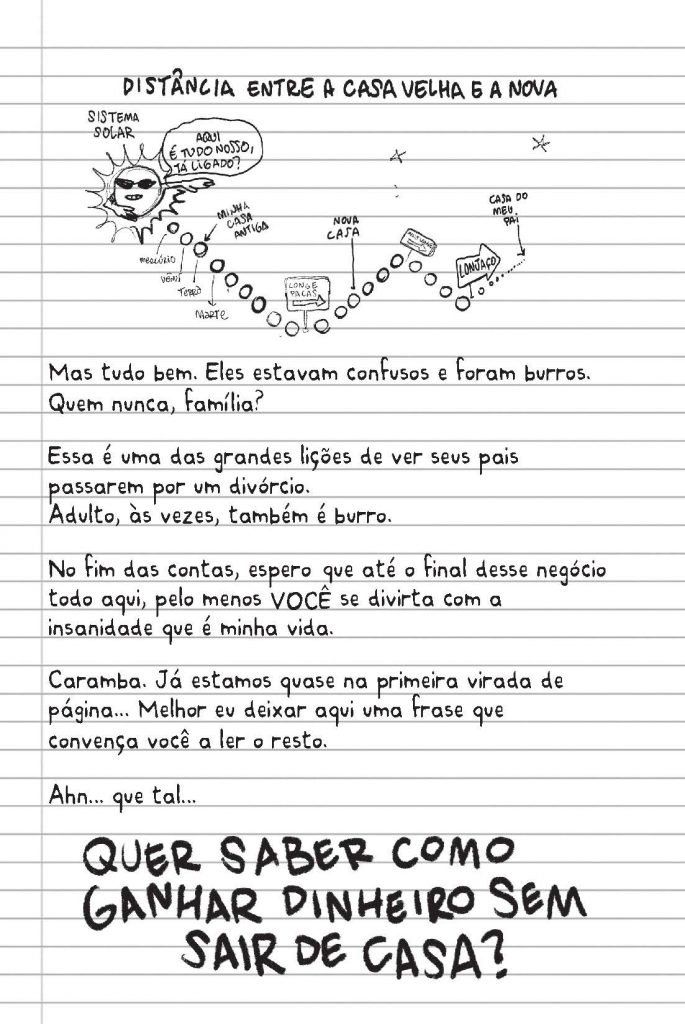 DISTÂNCIA ENTRE A CASA VELHA E A NOVA
SISTEMA
SOLAR
AQUI
É TUDO NOSSO,
TÁ LIGADO?
MINHA
CASA
ANTIGA
MERCÚRIO
VÊNUS
TERRA
MARTE
LONGE
PACAS
NOVA
CASA
LONJAÇO
CASA DO
MEU
PAI
Mas tudo bem. Eles estavam confusos e foram burros.
Quem nunca, família?
Essa é uma das grandes lições de ver seus pais
passarem por um divórcio.
Adulto, às vezes, também é burro.
No fim das contas, espero que até o final desse negócio
todo aqui, pelo menos VOCÊ se divirta com a
insanidade que é minha vida.
Caramba. Já estamos quase na primeira virada de
página... Melhor eu deixar aqui uma frase que
convença você a ler o resto.
Ahn... que tal...
QUER SABER COMO
GANHAR DINHEIRO SEM
SAIR DE CASA?